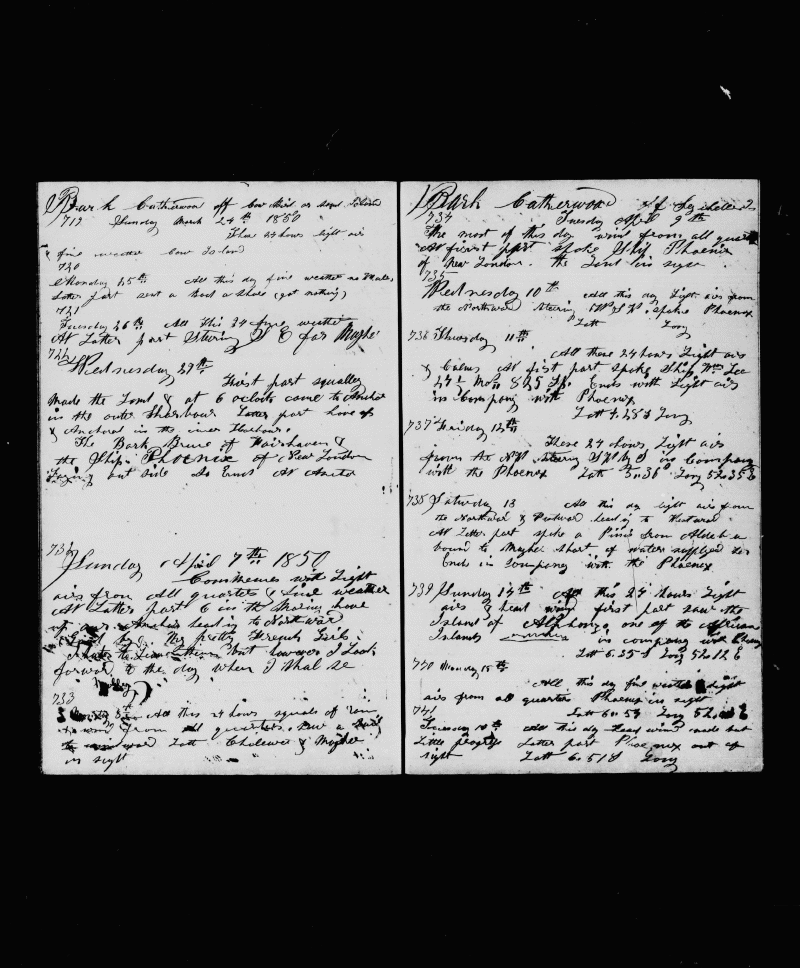 Bark Catherwood off Cow Island or
719 Sunday March 24th 1850
These 24 hours light air
fine weather Cow Island
720
Monday 25th All this day fine weather no Whales
Latter part sent a Boat a Shore (got nothing)
721
Tuesday 26th All This 24 fine weather
At Latter part Steering S E for Mayhe
722
Wednesday 27th
First part squally
Made the Land & at 6 oclock came to Anchor
in the outer Harbour Latter part hove up
& Anchored in the inner Harbour.
The Bark Bruce of Fairhaven &
the Ship Phoenix of New London
Laying out side So Ends At Anchor
732
Sunday April 7th 1850
Commences with Light
airs from All quarters & fine weather
At Latter part 6 in the Morning hove
up our Anchor bead in to Northward
Good by My pretty French Girls
I hate to Leave them but however I Look
forward to the day when I shal se
733
8th All this 24 hours squals of rain
wind from All quarters. Saw a
Latt & Mayhe
in sight
Bark Catherwood off
734 Tuesday April 9th
The most of this day wind from all quarters
At first part spoke Ship Phoenix
of New London. the Land in sight
735
Wednesday 10th All this day Light airs from
the Northward Steering spoke Phoenix
Latt Long
736 Thursday 11th
All these 24 hours Light airs
& Calms At first part spoke Ship Wm Lee
24 Mos 825 Sp. Ends with Light airs
in Company with Phoenix
Latt 4.28 S Long
737 Friday 12th
These 24 hours Light airs
from the N.W Steering in Company
with the Phoenix Latt 5..36 Long 52.35 E
738 Saturday 13 All this day light airs from
the Northward & Westward head in to Westward
At Latter part spoke a from
bound to Mayhe short of water supplied her
Ends in Company with the Phoenix
739 Sunday 14th All this 24 hours Light
airs & head wind first part saw the
Island of Alphonzo one of the African
Islands in company with Phoenix
Latt 6.25 S Long 52.12 E
740 Monday 15th
All this day fine weather & light
airs from all quarters Phoenix in sight
741 Latt 6..53 Long
Tuesday 16th All this day Head wind made but
Little progress Latter part Phoenix out of
sight Latt 6.51 S Long